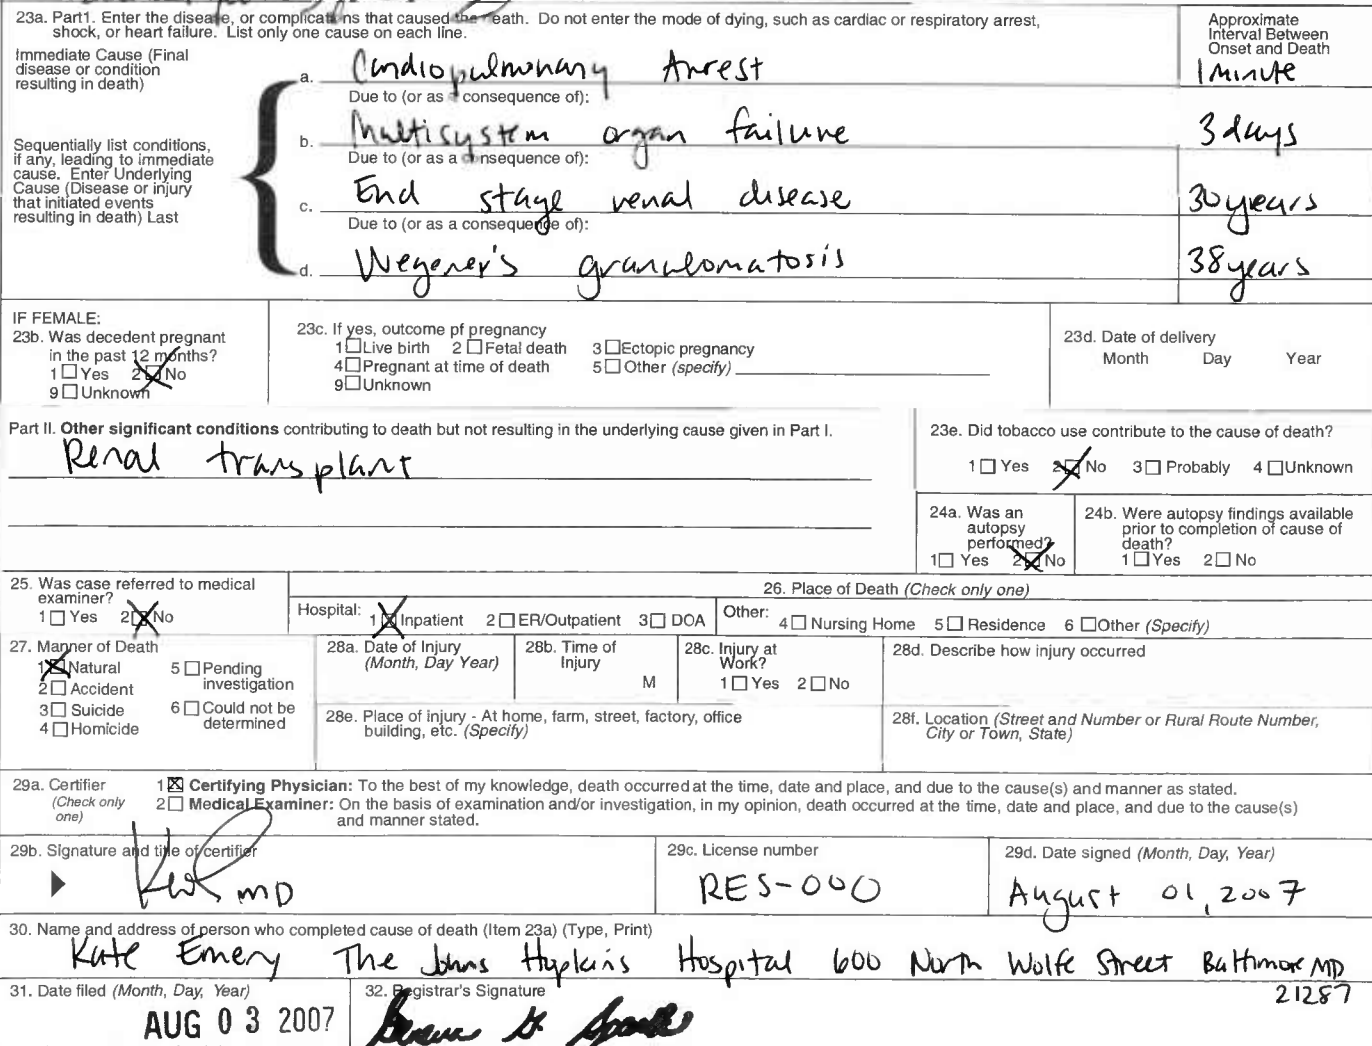 23a. Part1. Enter the disease, or complications that caused the death. Do not enter the mode of dying, such as cardiac or respiratory arrest,
shock, or heart failure. List only one cause on each line.
Approximate
Interval Between
Onset and Death
Immediate Cause (Final
disease or condition
resulting in death)
a. Cardiopulmonary Arrest 1 Minute
Due to (or as a consequence of):
Sequentially list conditions,
if any, leading to immediate
cause. Enter Underlying
Cause (Disease or injury
that initiated events
resulting in death) Last
b. Multisystem organ failure 3 days
Due to (or as a consequence of):
c. End stage renal disease 30 years
Due to (or as a consequence of):
d. Wegener's granulomatosis 38 years
IF FEMALE:
23b. Was decedent pregnant
in the past 12 months?
1 Yes 2 No
9 Unknown
23c. If yes, outcome pf pregnancy
1 Live birth 2 Fetal death 3 Ectopic pregnancy
4 Pregnant at time of death 5 Other (specify)
9 Unknown
23d. Date of delivery
Month Day Year
Part II. Other significant conditions contributing to death but not resulting in the underlying cause given in Part I.
Renal transplant
23e. Did tobacco use contribute to the cause of death?
1 Yes 2 No 3 Probably 4 Unknown
24a. Was an
autopsy
performed?
1 Yes 2 No
24b. Were autopsy findings available
prior to completion of cause of
death?
1 Yes 2 No
25. Was case referred to medical
examiner?
1 Yes 2 No
26. Place of Death (Check only one)
Hospital: 1 Inpatient 2 ER/Outpatient 3 DOA
Other: 4 Nursing Home 5 Residence 6 Other (Specify)
27. Manner of Death
1 Natural
2 Accident
3 Suicide
4 Homicide
5 Pending
investigation
6 Could not be
determined
28a. Date of Injury
(Month, Day Year)
28b. Time of
Injury
M
28c. Injury at
Work?
1 Yes 2 No
28d. Describe how injury occurred
28e. Place of injury - At home, farm, street, factory, office
building, etc. (Specify)
28f. Location (Street and Number or Rural Route Number,
City or Town, State)
29a. Certifier
(Check only
one)
1 Certifying Physician: To the best of my knowledge, death occurred at the time, date and place, and due to the cause(s) and manner as stated.
2 Medical Examiner: On the basis of examination and/or investigation, in my opinion, death occurred at the time, date and place, and due to the cause(s)
and manner stated.
29b. Signature and title of certifier
MD
29c. License number
RES-000
29d. Date signed (Month, Day, Year)
August 01, 2007
30. Name and address of person who completed cause of death (Item 23a) (Type, Print)
Kate Emery The Johns Hopkins Hospital 600 North Wolfe Street Baltimore MD
21287
31. Date filed (Month, Day, Year)
AUG 03 2007
32. Registrar's Signature